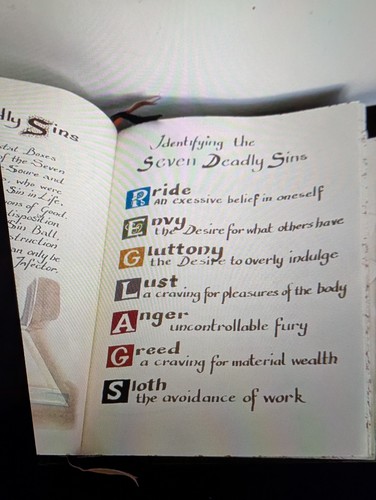 dly Sins
of the Seven
and
who were
Sin in Life.
of Good,
disposition
Sin Ball,
an only be
Infector.
Identifying the
Seven Deadly Sins
Pride
an exessive belief in oneself
Envy
the Desire for what others have
Gluttony
the Desire to overly indulge
Lust
a craving for pleasures of the body
Anger
uncontrollable fury
Greed
a craving for material wealth
Sloth
the avoidance of work